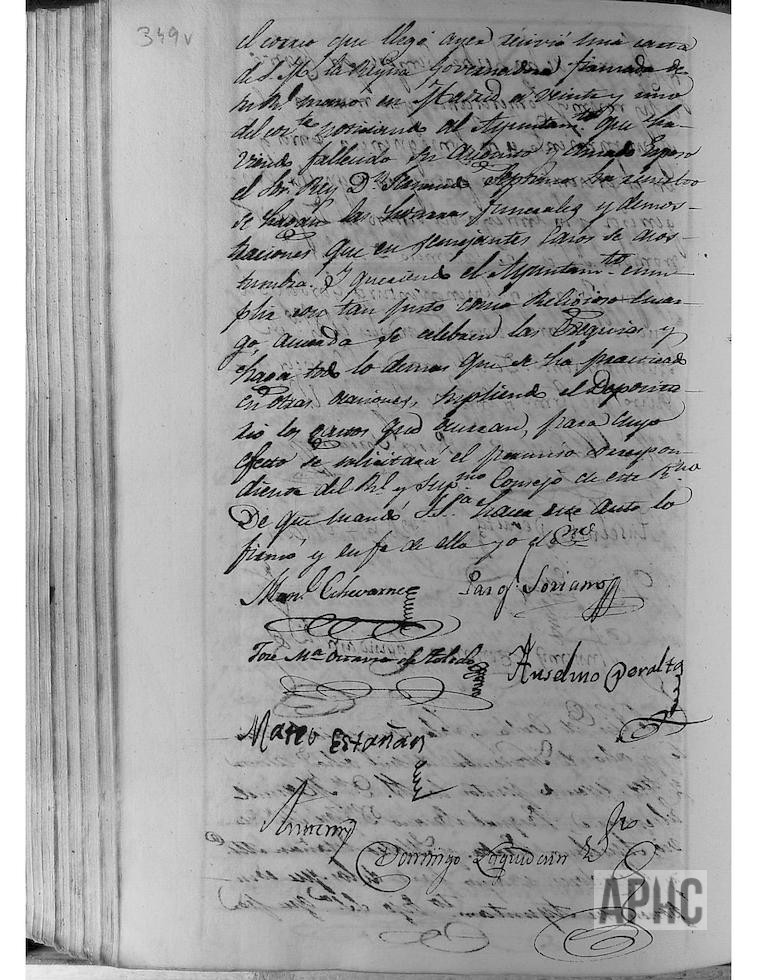 349v
el correo que llegó ayer recivió una carta
de S. M. la Reyna Governadora firmada de
su Rl. mano en Madrid a veinte y uno
del corte. noticiando al Ayuntamto. que ha-
viendo fallecido su Augusto y amado Esposo
el Sor. Rey Dn. Fernando Septimo ha resuelto
se hagan las honras funerales y demos-
traciones que en semejantes casos se acos-
tumbra. Y queriendo el Ayuntamto. cum-
plir con tan justo como Religioso encar-
go, acuerda se celebren las Exequias y
haga todo lo demas que se ha practicado
en otras ocasiones, supliendo el Deposita-
rio los gastos que ocurran, para cuyo
efecto se solicitará el permiso correspon-
diente del Rl. y Supmo. Consejo de este Rno.
De que mandó S. Sa. hacer este auto lo
firmó y en fe de ello yo el Sno.
Manl. Echevarne Soriano
José Ma. de Toledo Anselmo Peralta
Mateo Estañan
Ante mi
Domingo Sno.
APHC